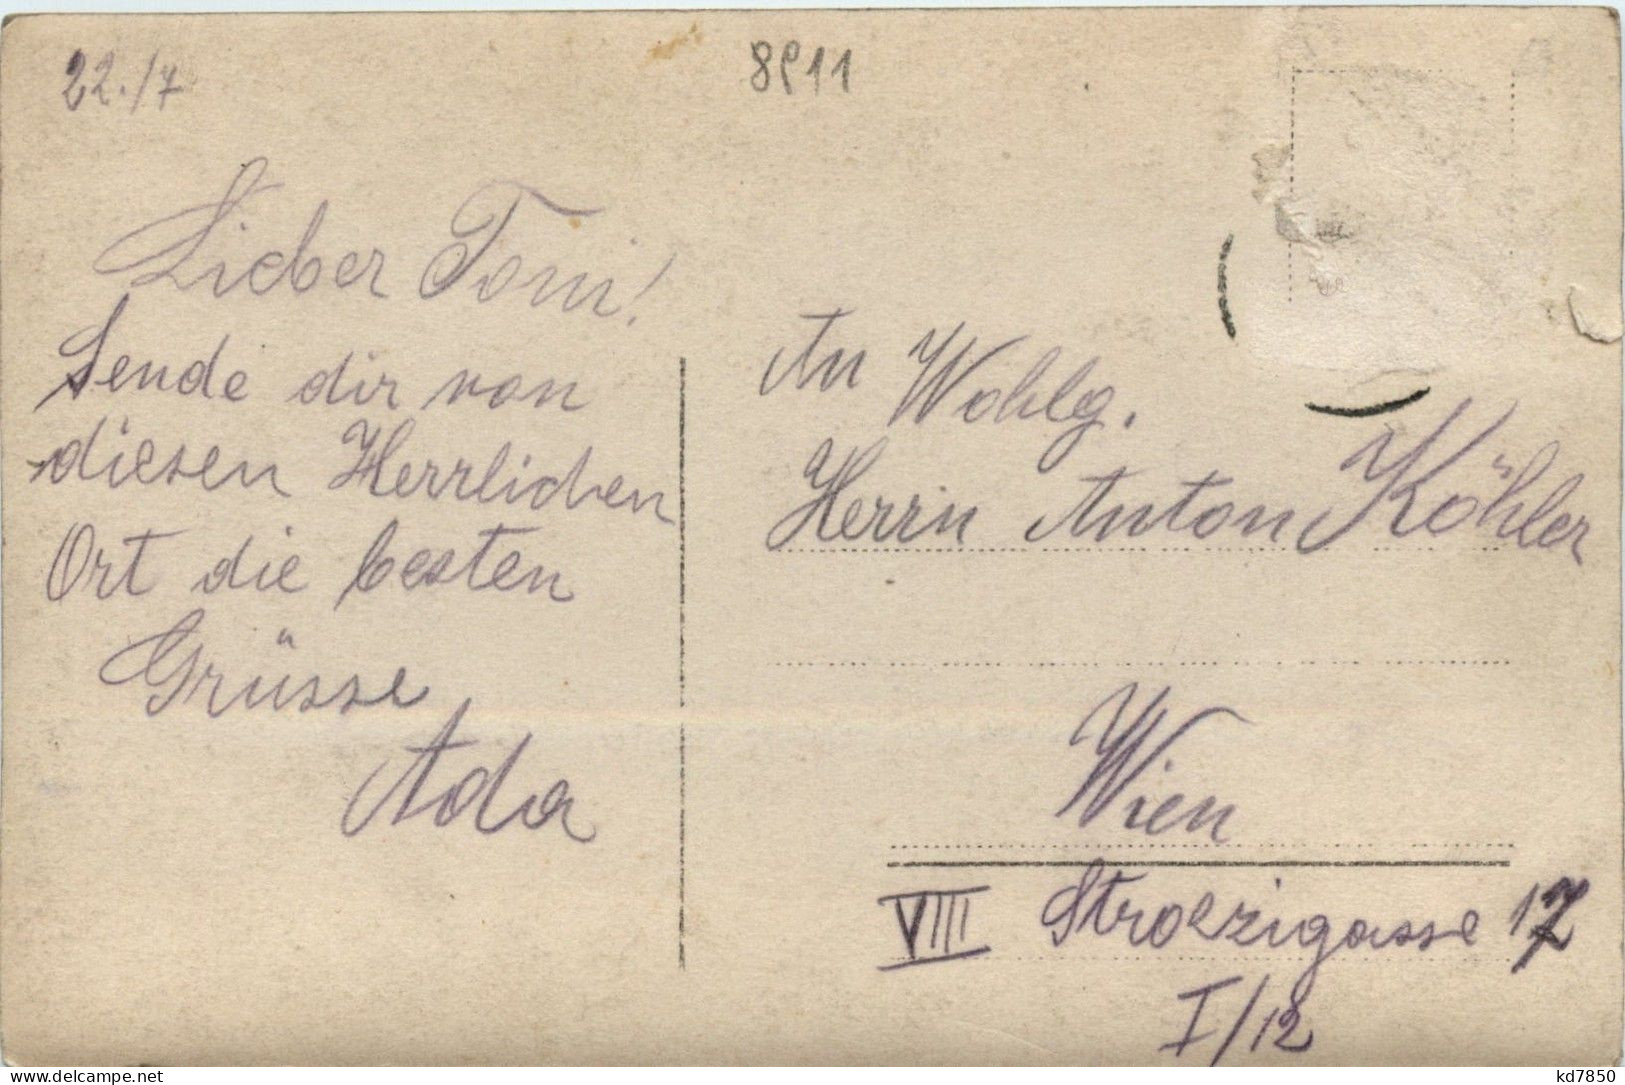 22./7
8911
Lieber Toni!
Sende dir von
diesen Herrlichen
Ort die besten
Grüsse
Ada
An Wohlg.
Herrn Anton Köhler
Wien
VIII Strozzigasse 17
I/12
www.delcampe.net
kd7850